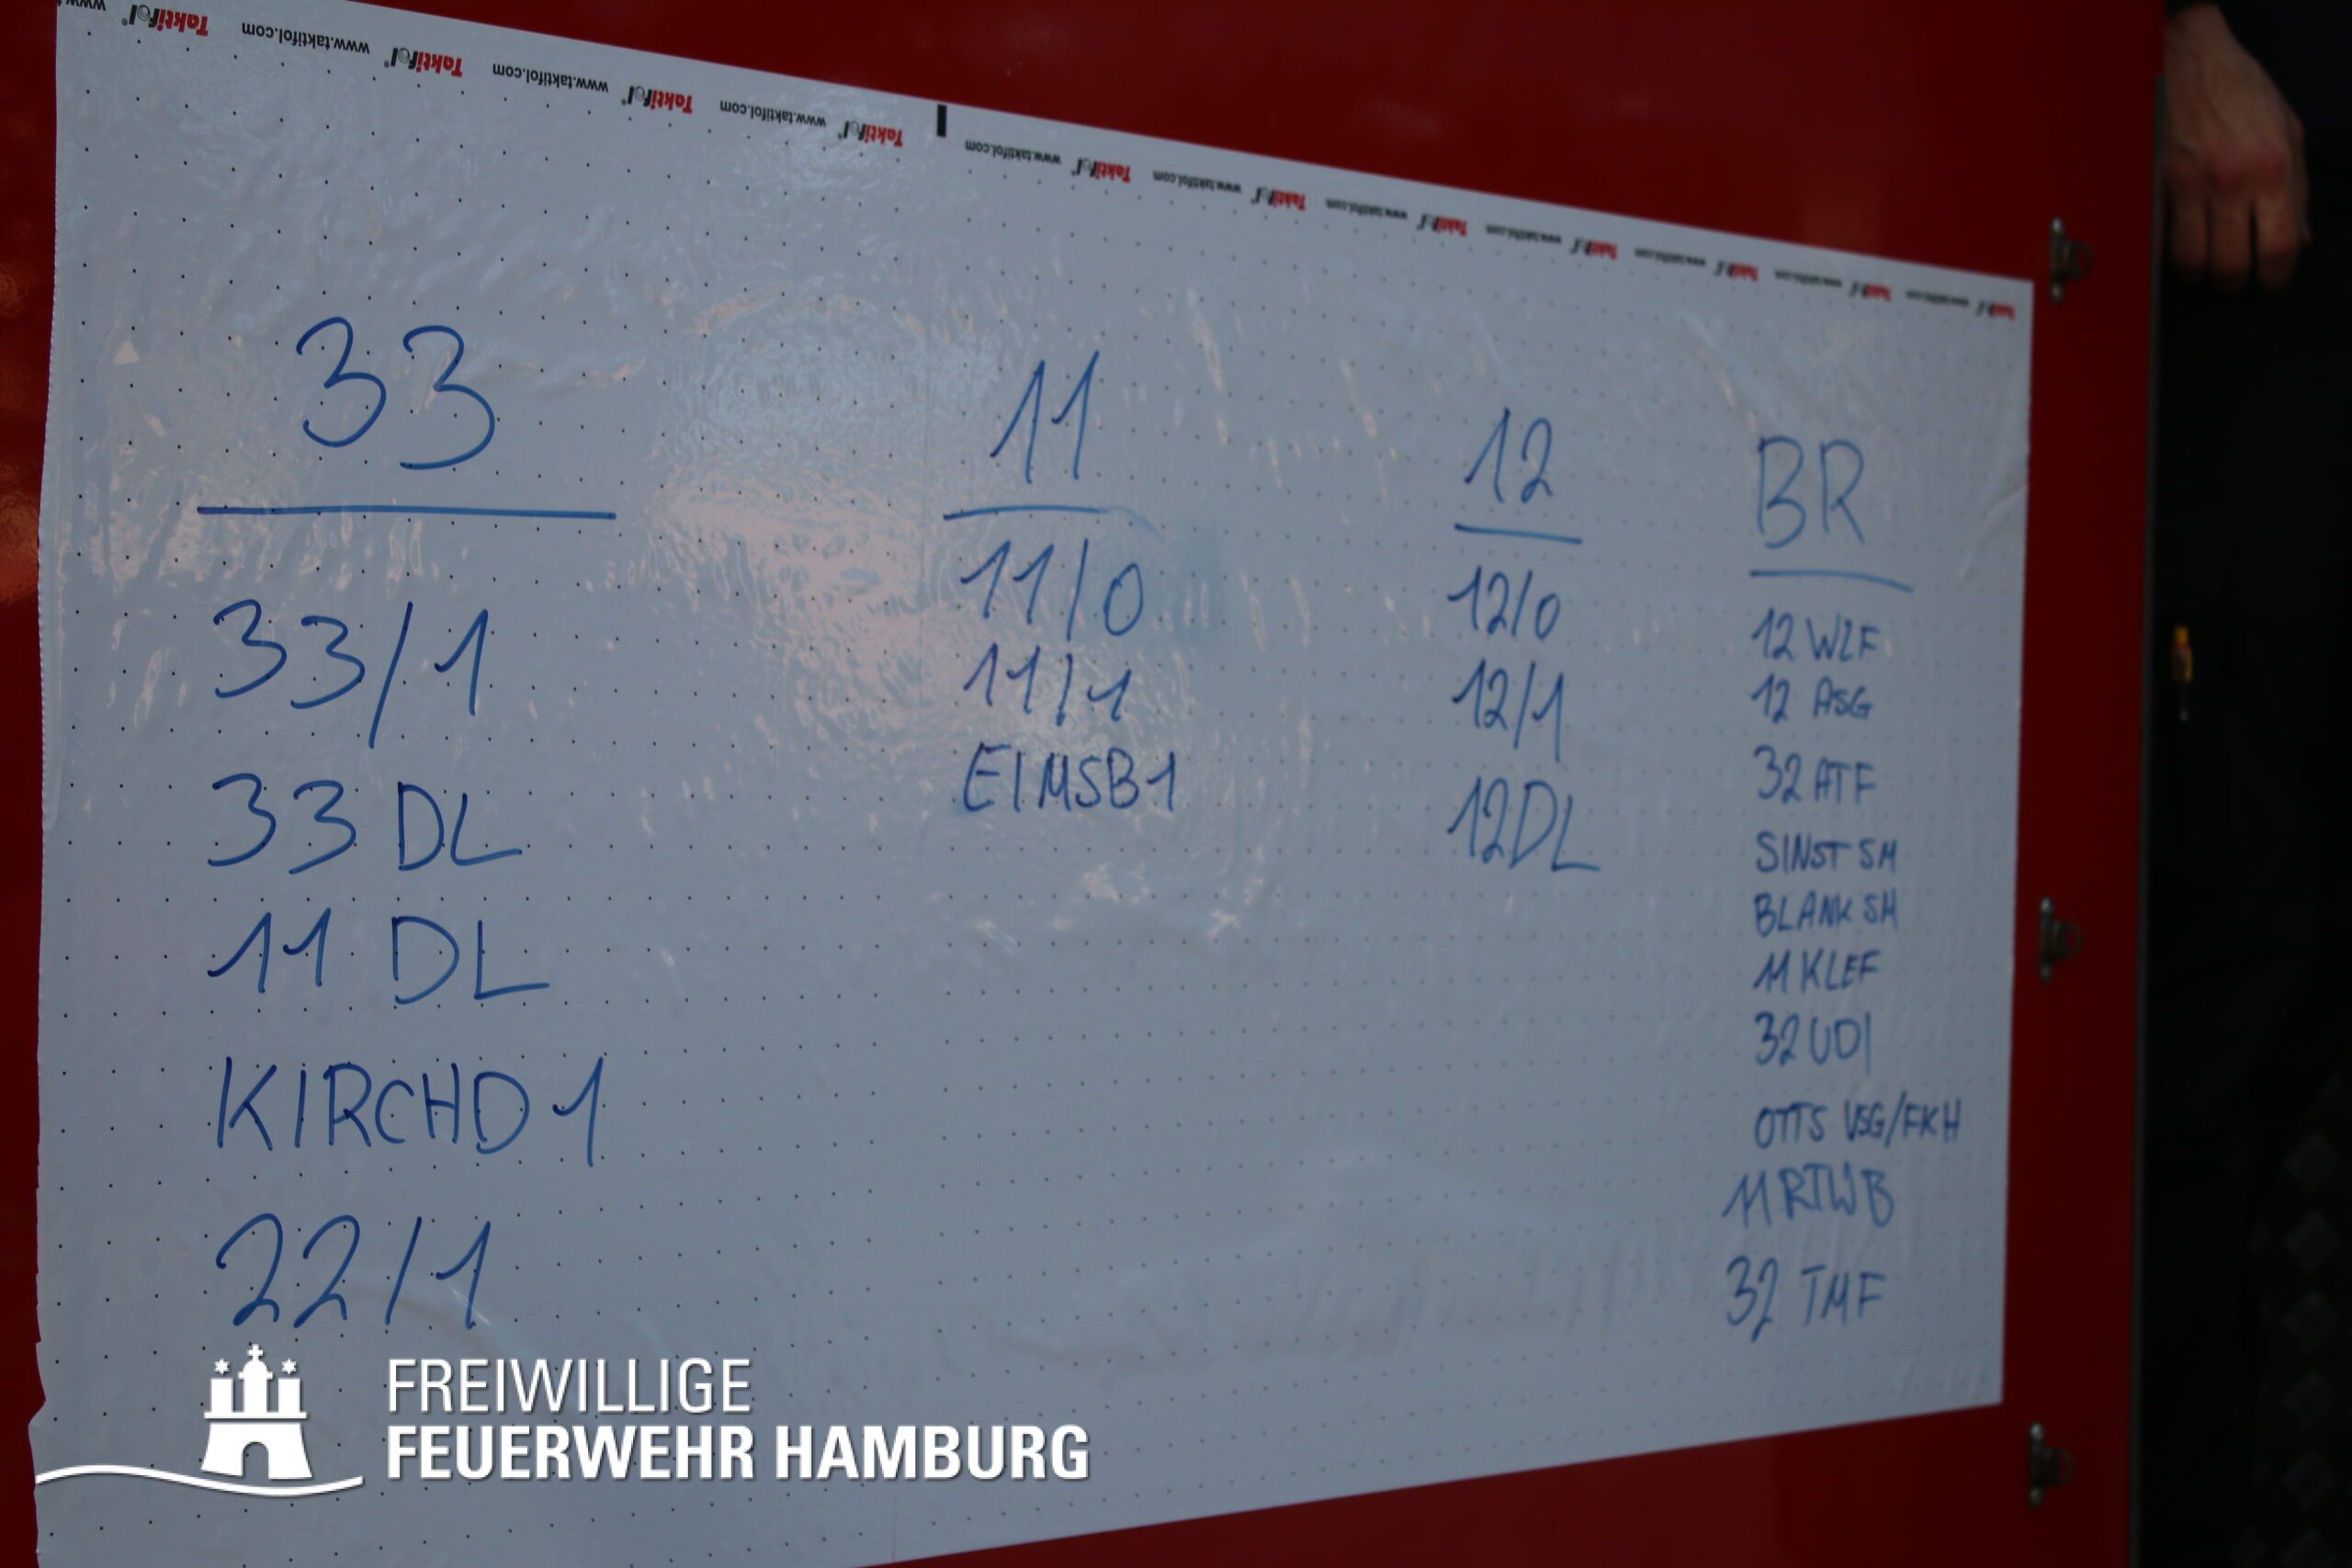 www.taktifol.com Taktifol® www.taktifol.com Taktifol® www.taktifol.com Taktifol® www.taktifol.com Taktifol® www.taktifol.com Taktifol® www.taktifol.com Taktifol® www.taktifol.com Taktifol® www.taktifol.com Taktifol®
33
33/1
33 DL
11 DL
KIRCHD 1
22/1
11
11/0
11/1
EIMSB1
12
12/0
12/1
12DL
BR
12 WLF
12 ASG
32 ATF
SINST SM
BLANK SM
11 KLEF
32 UDI
OTTS VSG/FKH
11 RTWB
32 TMF
FREIWILLIGE
FEUERWEHR HAMBURG